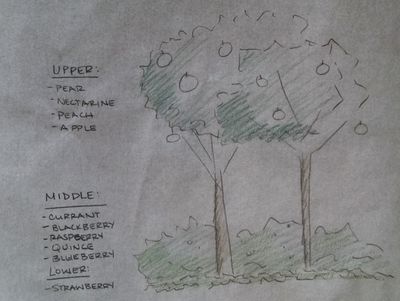 UPPER:
- PEAR
- NECTARINE
- PEACH
- APPLE
MIDDLE:
- CURRANT
- BLACKBERRY
- RASPBERRY
- QUINCE
- BLUEBERRY
LOWER:
- STRAWBERRY